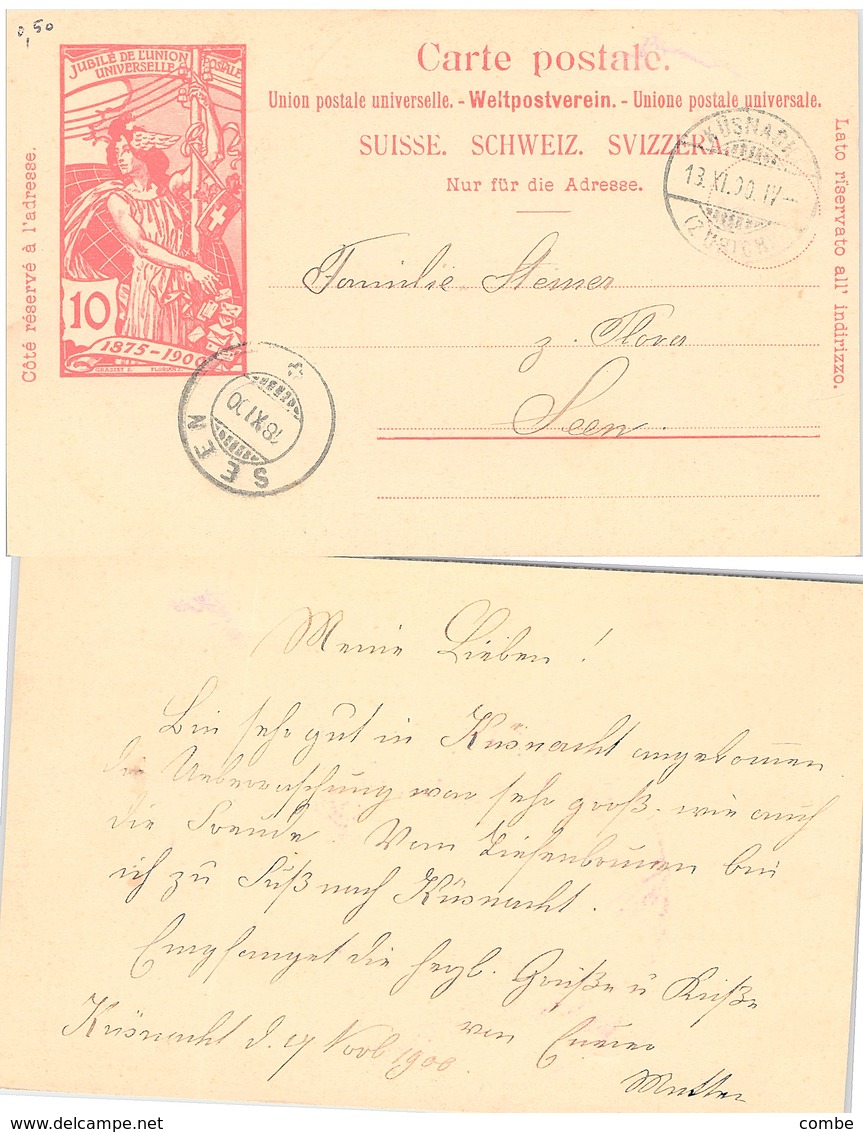 0,50
JUBILÉ DE L'UNION
POSTALE
UNIVERSELLE
10
1875-1900
GRASSET E.
Côté réservé à l'adresse.
Carte postale.
Union postale universelle. - Weltpostverein. - Unione postale universale.
SUISSE. SCHWEIZ. SVIZZERA.
Nur für die Adresse.
Lato riservato all' indirizzo.
KÜSNACHT
13.XI.00.IV-
(ZÜRICH)
Familie Steiner
z. Flora
Seen.
18.XI.00
SEEN
Meine Lieben!
Bin sehr gut in Küsnacht angekommen
die Ueberraschung war sehr groß. wie auch
die Freude. Vom Tiefenbrunnen bin
ich zu Fuß nach Küsnacht.
Empfanget die herzl. Grüße u Küße
von Euerer
Küsnacht d. 17 Novb 1900.
Mutter
combe